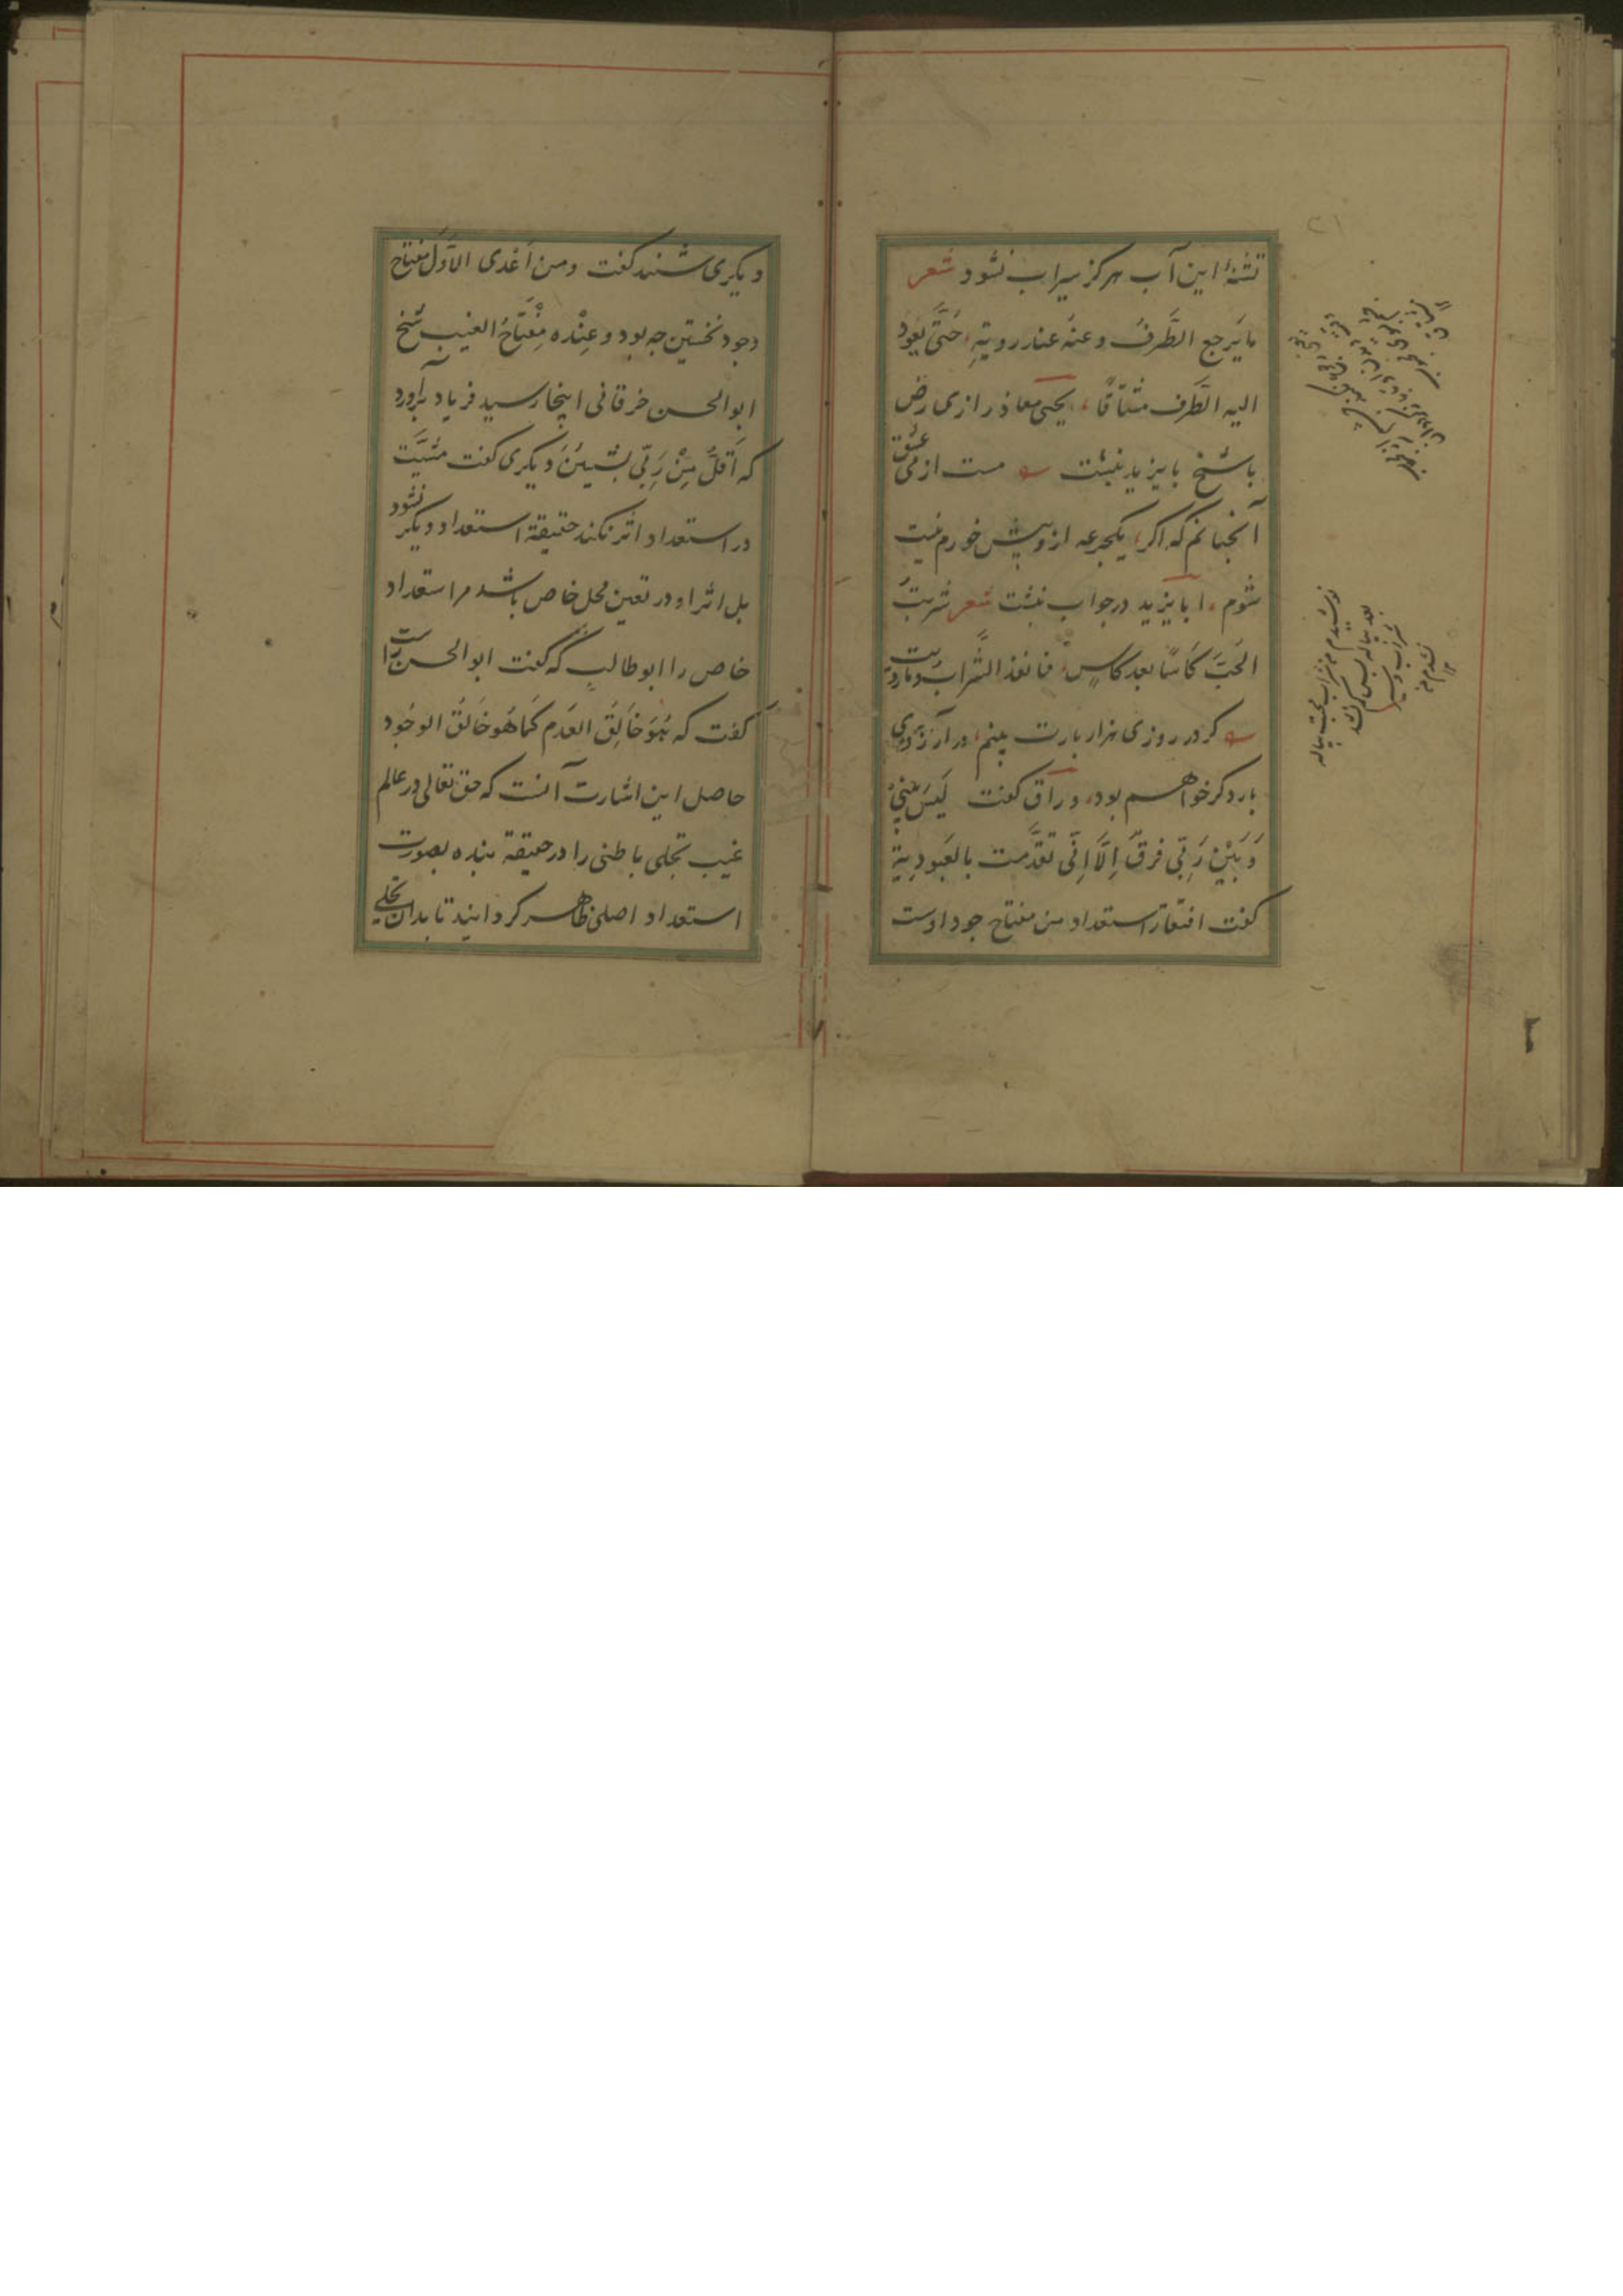 تشنهٔ این آب هرکز سیراب نشود شعر
مایَرجع الطَّرفُ وعنهُ عند رویتهِ، حَتَّی یَعُودُ
الیه الطَّرف مشتاقًا، یحیی معاذ رازی رض
باشیخ بایزید نبشت مست از می عشق
آنچنانم که اکر، یکجرعه ازو بیش خورم نیست
شوم، ابایزید در جواب نبشت شعر شربتُ
الحَبَّ کَاسًا بعد کاسٍ، فما نفد الشَّراب وما رویت
کر در روزی هزار بارت بینم، در آرزوی
بار دکر خواهم بود، ورّاق کفت لَیسَ بَینی
وَبَیْن رَبِّی فرقٌ اِلَّا اِنّی تقدَّمت بالعبودیة
کفت افتقار استعداد من مفتاح جود اوست
دیکری شنید کفت ومن اَعْدی الاَوَّلَ مفتاح
وجود نخستین چه بود وعِنْده مِفْتَاحُ الغیب شیخ
ابوالحسن خرقانی اینجا رسید فریاد برآورد
که اَقلُّ مِنْ رَبِّی بشیئین دیکری کفت مشیَّت
در استعداد اثر نکند حقیقة استعداد دیکر نشود
بل اثر او در تعین محل خاص باشد مر استعداد
خاص را ابوطالب که کفت ابوالحسن راست
کفت که هُوَ خَالِقُ العَدَم کَمَا هُو خَالقُ الوجُود
حاصل این اشارت آنست که حق تعالی در عالم
غیب تجلی باطنی را در حقیقة بنده بصورت
استعداد اصلی ظاهر کردانید تا بدان تجلی
نوشیدم من شراب محبت پیاله
بعد پیاله پس کم نشد
شراب و سیر
نشدم من